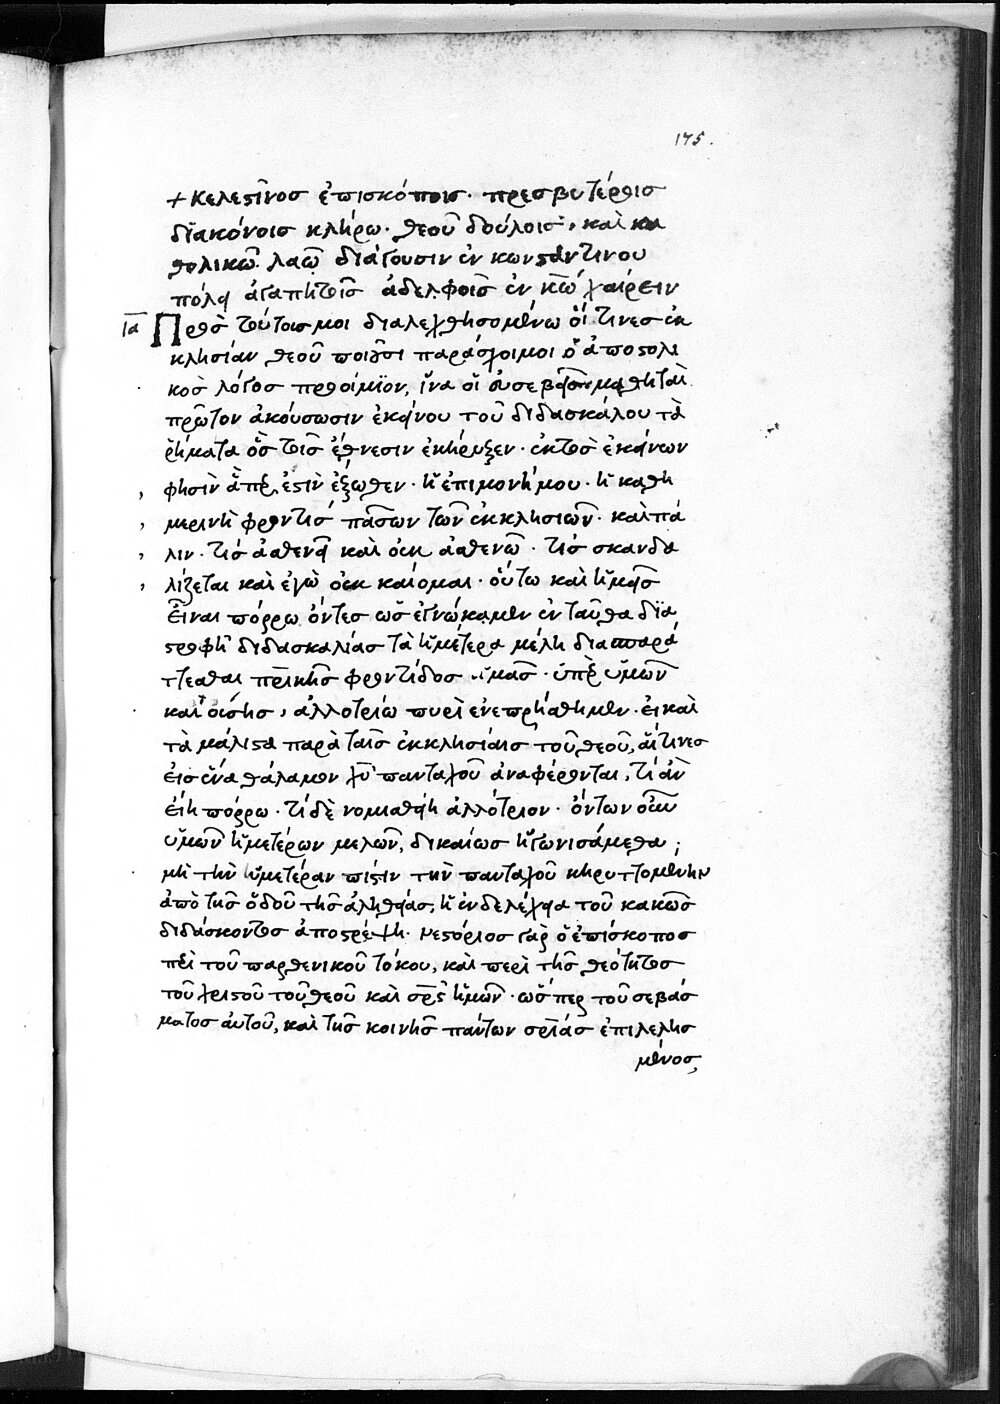 175.
+ Κελεστῖνος ἐπισκόποις· πρεσβυτέροις
διακόνοις κλήρω· θεοῦ δούλοις· καὶ κα
θολικῶ λαῶ διάγουσιν ἐν κωνσταντινου
πόλει ἀγαπητοῖς ἀδελφοῖς ἐν κ̅ω̅ χαίρειν
ια Πρὸς τούτοις μοι διαλεχθησομένω οἵ τινες ἐκ
κλησίαν θεοῦ ποιοῦσι παράσχοιμοι ὁ ἀποστολι
κὸς λόγος προοίμιον, ἵνα οἱ εὐσεβεῖς μαθηταὶ
πρῶτον ἀκούσωσιν ἐκείνου τοῦ διδασκάλου τὰ
ῥήματα ὃς τοῖς ἔθνεσιν ἐκήρυξεν· ἐκτὸς ἐκείνων
φησὶν ἅπερ ἐστὶν ἔξωθεν· ἡ ἐπιμονή μου· ἡ καθη
μερινὴ φροντὶς πασῶν τῶν ἐκκλησιῶν· καὶ πά
λιν· τίς ἀσθενεῖ καὶ οὐκ ἀσθενῶ· τίς σκανδα
λίζεται καὶ ἐγὼ οὐκ καίομαι· οὕτω καὶ ἡμεῖς
εἶναι πόρρω ὄντες ὡς ἐγνώκαμεν ἐνταῦθα δια
στροφῆ διδασκαλίας τὰ ἡμέτερα μέλη διασπαρά
ττεσθαι πρικῆς φροντίδος ἡμᾶς· ὑπὲρ ὑμῶν
καιούσης, ἀλλοτρίω πυρὶ ἐνεπρήσθημεν· εἰ καὶ
τὰ μάλιστα παρὰ ταῖς ἐκκλησίαις τοῦ θεοῦ, αἵτινες
εἰς ἕνα θάλαμον χυ πανταχοῦ ἀναφέρονται, τί ἂν
εἴη πόρρω· τί δὲ νομισθείη ἀλλότριον· ὄντων οὖν
ὑμῶν ἡμετέρων μελῶν, δικαίως ἠγωνισάμεθα ;
μὴ τὴν ἡμετέραν πίστιν τὴν πανταχοῦ κηρυττομένην
ἀπὸ τῆς ὁδοῦ τῆς ἀληθείας, ἡ ἐνδελέχεια τοῦ κακῶς
διδάσκοντος ἀποστρέψη· Νεστόριος γὰρ ὁ ἐπίσκοπος
περὶ τοῦ παρθενικοῦ τόκου, καὶ περὶ τῆς θεότητος
τοῦ χριστοῦ τοῦ θεοῦ καὶ σρ̅ς ἡμῶν· ὥσπερ τοῦ σεβάσ
ματος αὐτοῦ, καὶ τῆς κοινῆς πάντων σρ̅ίας ἐπιλελησ
μένος,